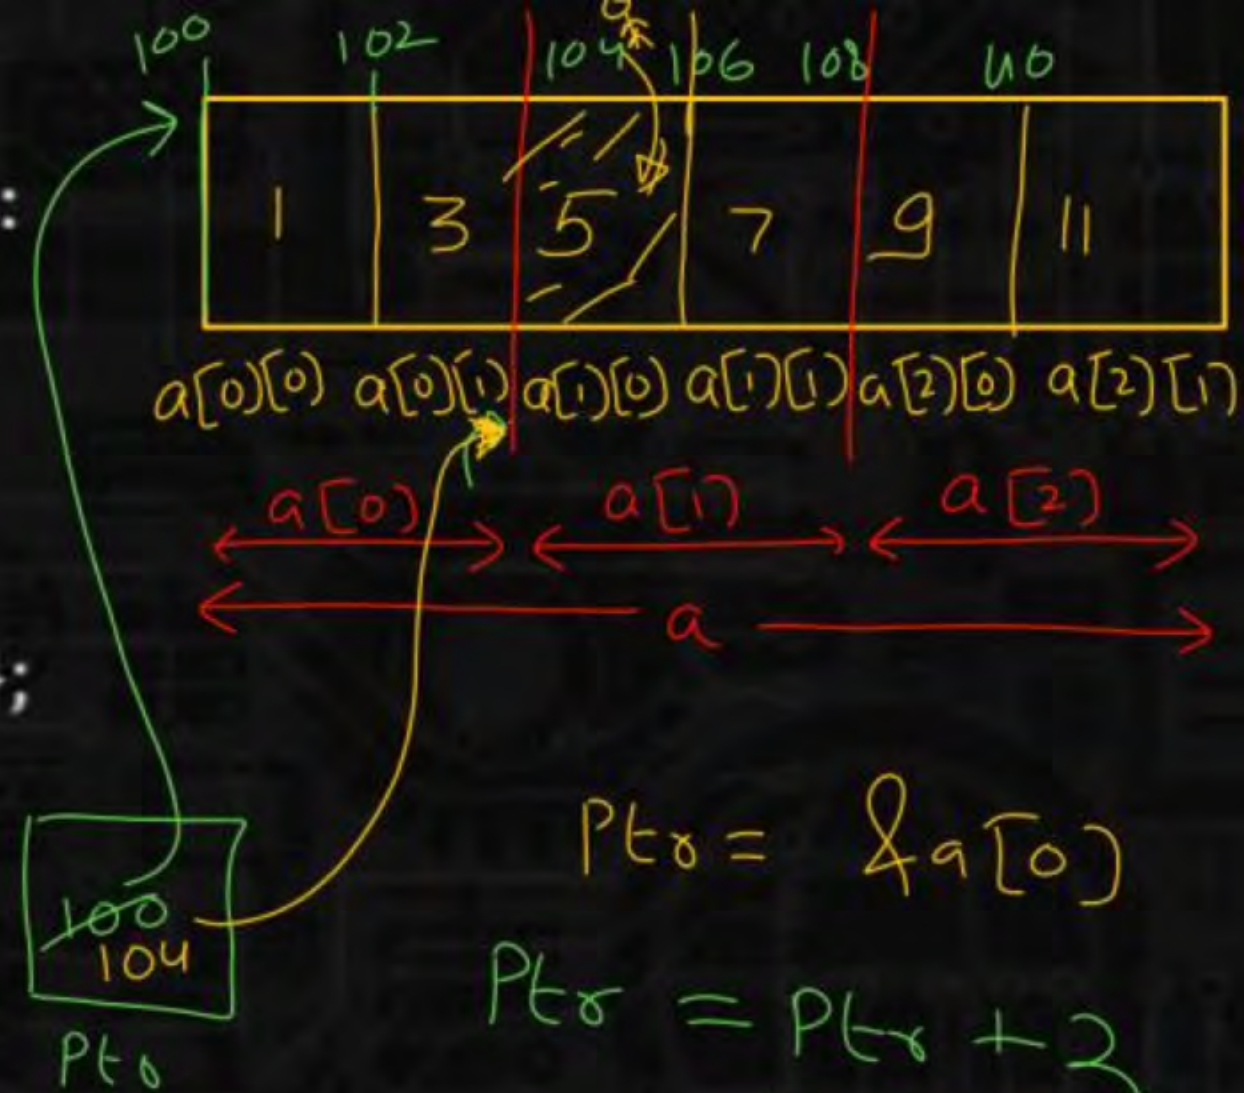 100 102 104 106 108 110
:
1 3 5 7 9 11
a[0][0] a[0][1] a[1][0] a[1][1] a[2][0] a[2][1]
a[0] a[1] a[2]
a
;
Ptr = &a[0]
100
104
Ptr = Ptr + 2
Ptr